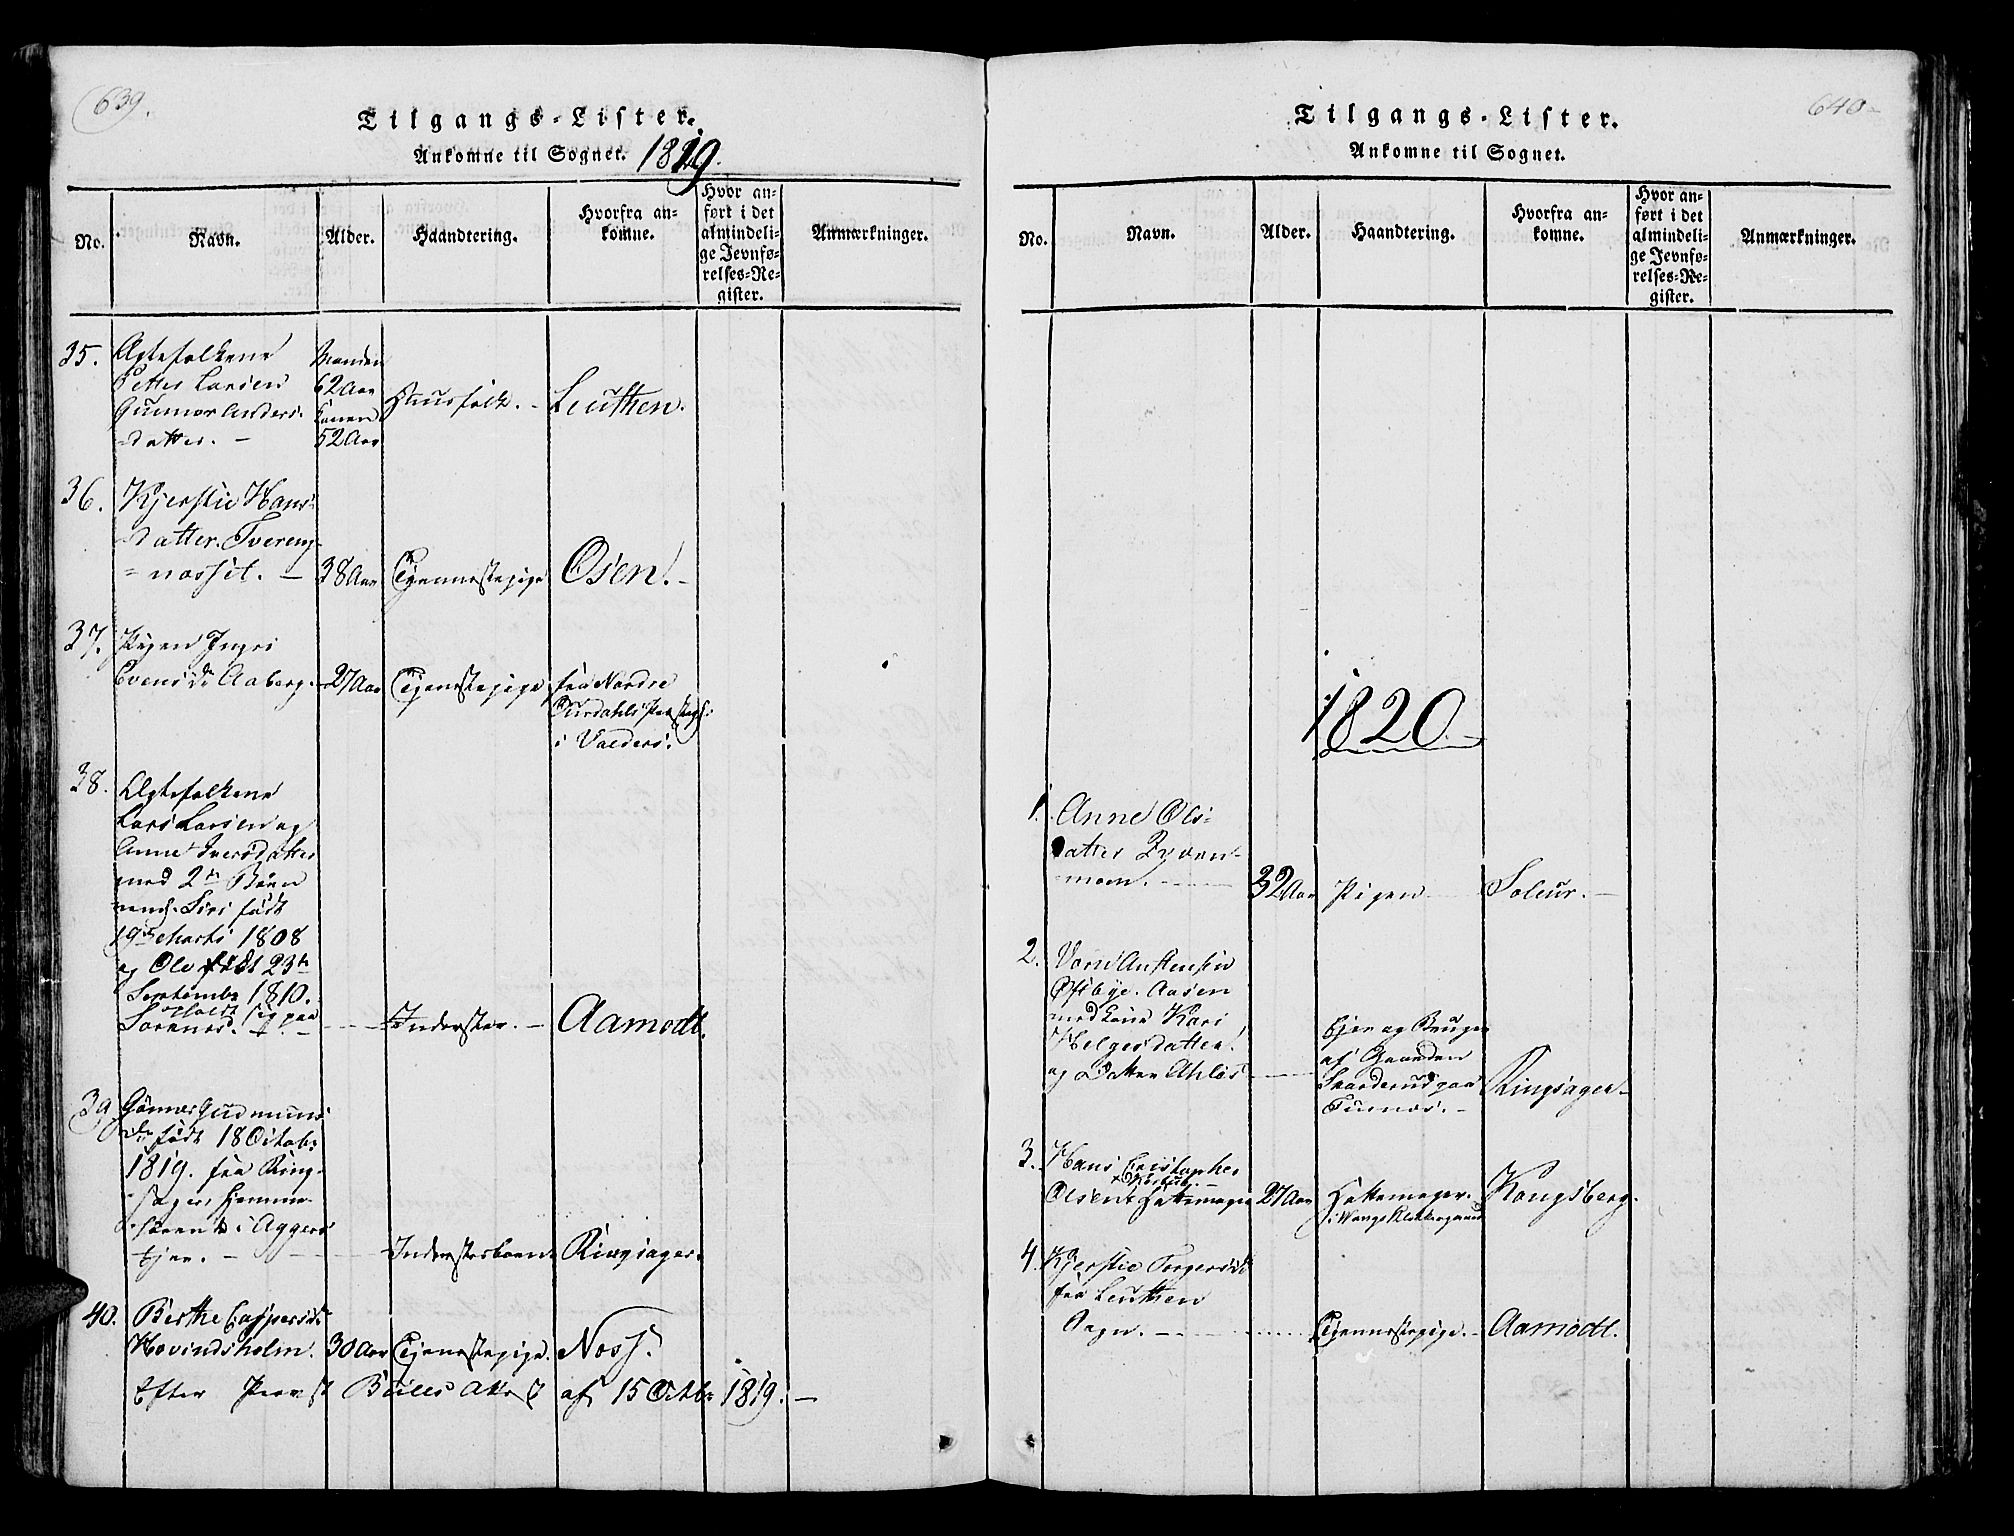 639.
Tilgangs-Lister.
Ankomne til Sognet. 1819.
No.
Navn.
Alder.
Haandtering.
Hvorfra an-
komne.
Hvor an-
ført i det
almindeli-
ge Jevnfø-
relses-Re-
gister.
Anmærkninger.
35. Ægtefolkene
Petter Larsen
Gunnor Anders-
datter. -
Manden
62 Aar
Konen
52 Aar
Huusfolk. - Leuthen.
36. Kjerstie Hans-
datter. Tvereng-
=nossit. - 38 Aar Tjennestepige Osen! -
37. Pigen Ingri
Evensdr Aaberg. - 27 Aar Tjenestepige fra Nordre
Ourdahls Præstegj:
i Valders.
38. Ægtefolkene
Lars Larsen og
Anne Iversdatter
med 2de Børn
nemlig Siri født
19de Marts 1808
og Ole født 23de
Septembr 1810.
opholdt sig paa
- Inderster. - Aamodt.
39. Gudmuns
dr født 18 Octobr
1819. fra Ring-
sager, hjemme-
hørende i Aggers
Ejer. - Inderstesbarn Ringsager.
40. Berthe Caspersdr
Hovindsholm. 30 Aar Tjenestepige. Næss.
Efter Provst Bulls Attest af 15 Octbr 1819. -
640-
Tilgangs-Lister.
Ankomne til Sognet.
No.
Navn.
Alder.
Haandtering.
Hvorfra an-
komne.
Hvor an-
ført i det
almindeli-
ge Jevnfø-
relses-Re-
gister.
Anmærkninger.
1820.
1. Anne Ols-
datter
moen. - 32 Aar Pigen Soleur. -
2. Austensen
Østbye. Aasen
med Kone Kari
Helgesdatter
og Datter Ahlis
Ejer og Bruger
af Gaarden
Skarderud paa
Furnæs. -
Ringsager -
3. Hans Cristopher
Olsen Hattemager 27 Aar Hattemager. Kongsberg.
i Wangs Klokkergaard
4. Kjerstie Torgersdr
fra Leuthen
Sogn. - Tjennestepige. - Aamodt.